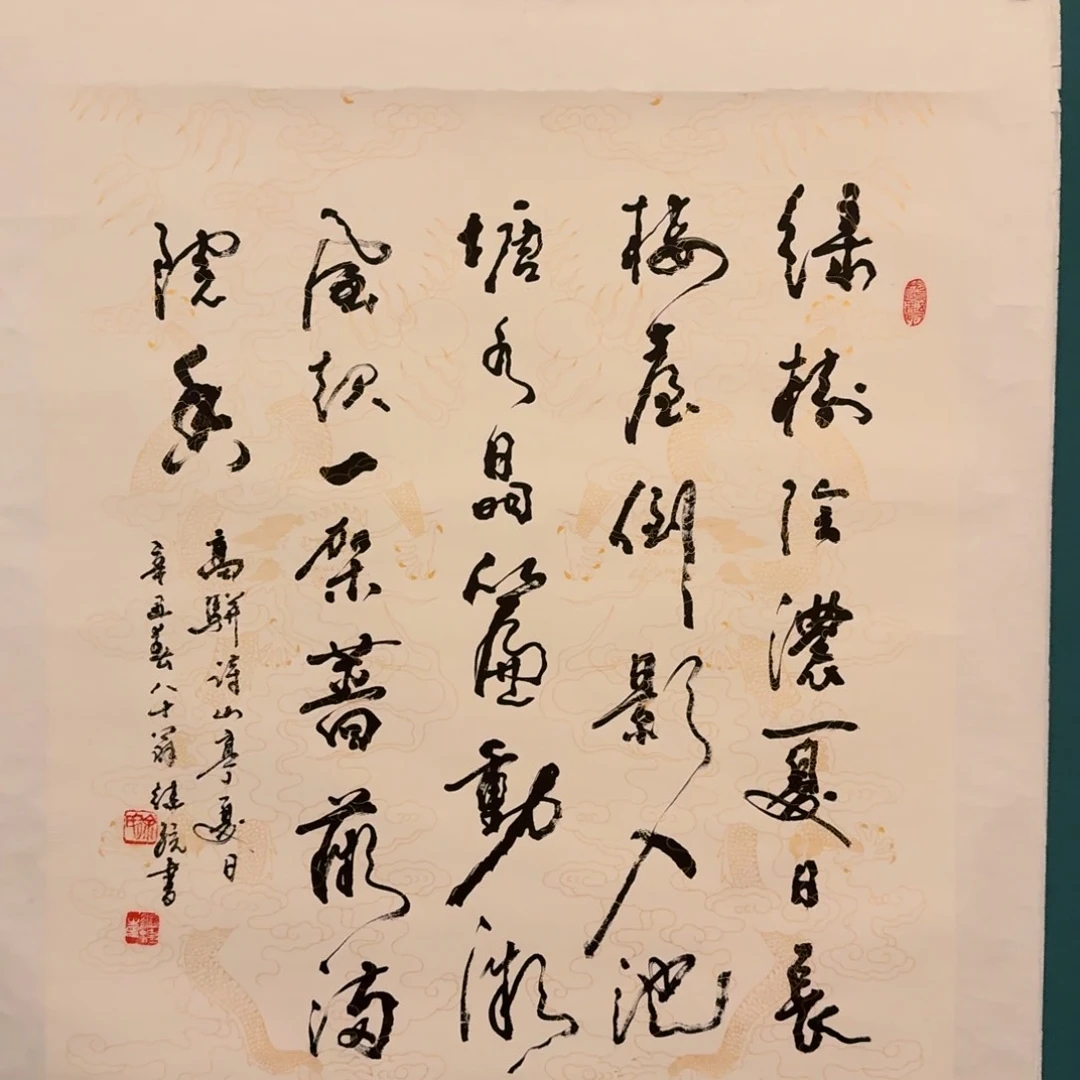 绿樹陰濃夏日長
楼臺倒影入池
塘水晶簾動微
風起一架薔薇满
院香
高駢诗山亭夏日
辛丑春八十翁
书